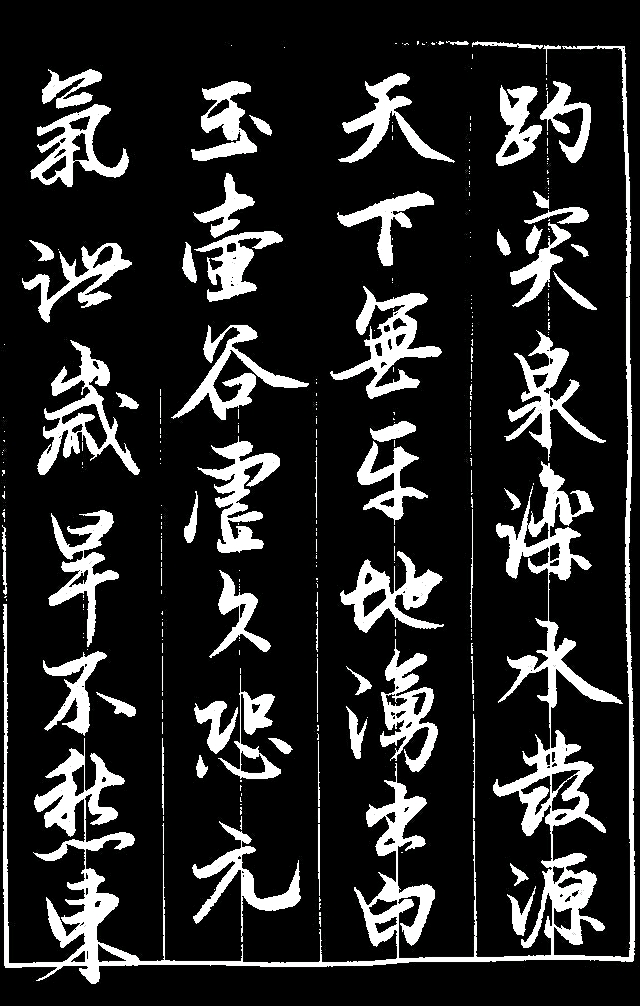 趵突泉濼水發源
天下無平地湧出白
玉壺谷虛久恐元
氣泄歲旱不愁東